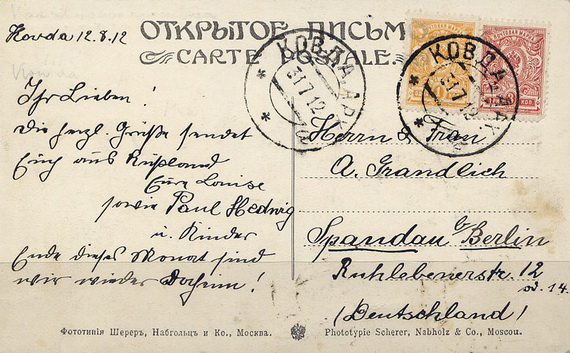 Kovda 12.8.12
ОТКРЫТОЕ ПИСЬМ
CARTE POSTALE.
КОВДА, АРХ.
31 7 12
КОВДА, АРХ.
31 7 12
Ihr Lieben!
Die herzl. Grüße sendet
Euch aus Rußland
Eure Louise
sowie Paul Hedwig
u. Kinder
Ende dieses Monat sind
wir wieder daheim!
Herrn & Frau
A. Grandlich
Spandau b/Berlin
Ruhlebenerstr. 12
od. 14.
(Deutschland)
Фототипія Шереръ, Набгольцъ и Ко., Москва.
Phototypie Scherer, Nabholz & Co., Moscou.